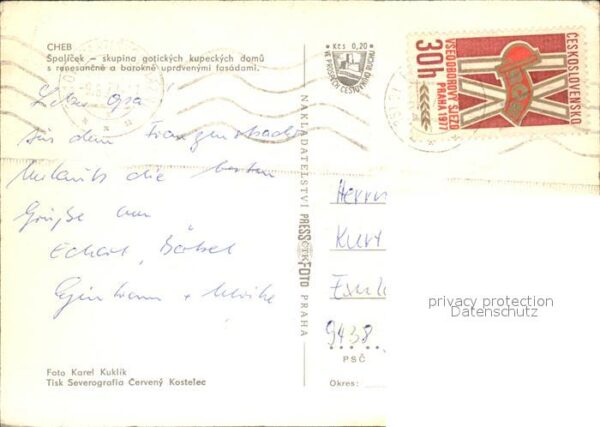 CHEB
Špalíček – skupina gotických kupeckých domů
s renesančně a barokně upravenými fasádami.
Kčs 0,20
VE PROSPĚCH CESTOVNÍHO RUCHU
ČESKOSLOVENSKO
IX
VŠEODBOROVÝ SJEZD
PRAHA 1977
30h
Lieber Opa!
aus dem Franzensbader
Urlaub die besten
Grüße von
Eckart, Bärbel
+ Ulrike
NAKLADATELSTVÍ PRESSFOTO PRAHA
ČTK
Herrn
Kurt
9438
PSČ
Okres:
privacy protection
Datenschutz
Foto Karel Kuklík
Tisk Severografia Červený Kostelec